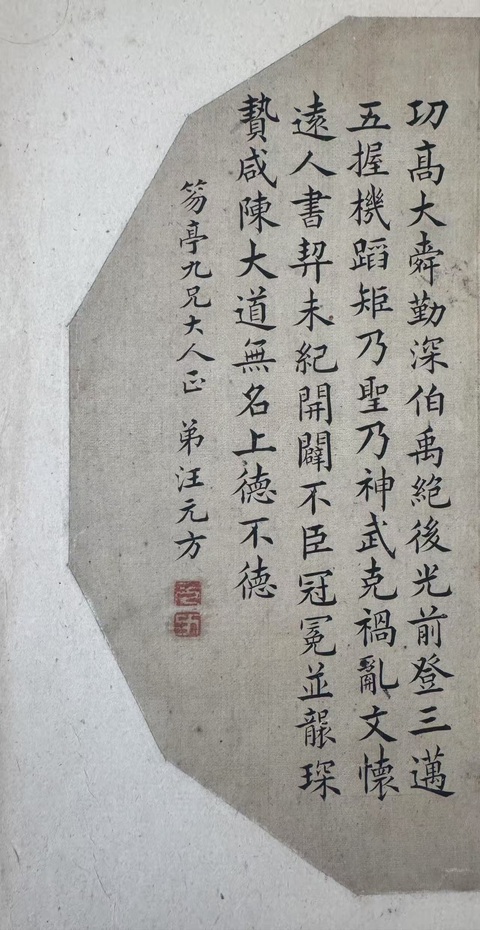 功高大舜勤深伯禹絶後光前登三邁
五握機蹈矩乃聖乃神武克禍亂文懷
遠人書契未紀開闢不臣冠冕並襲琛
贄咸陳大道無名上德不德
笏亭九兄大人正 弟汪元方